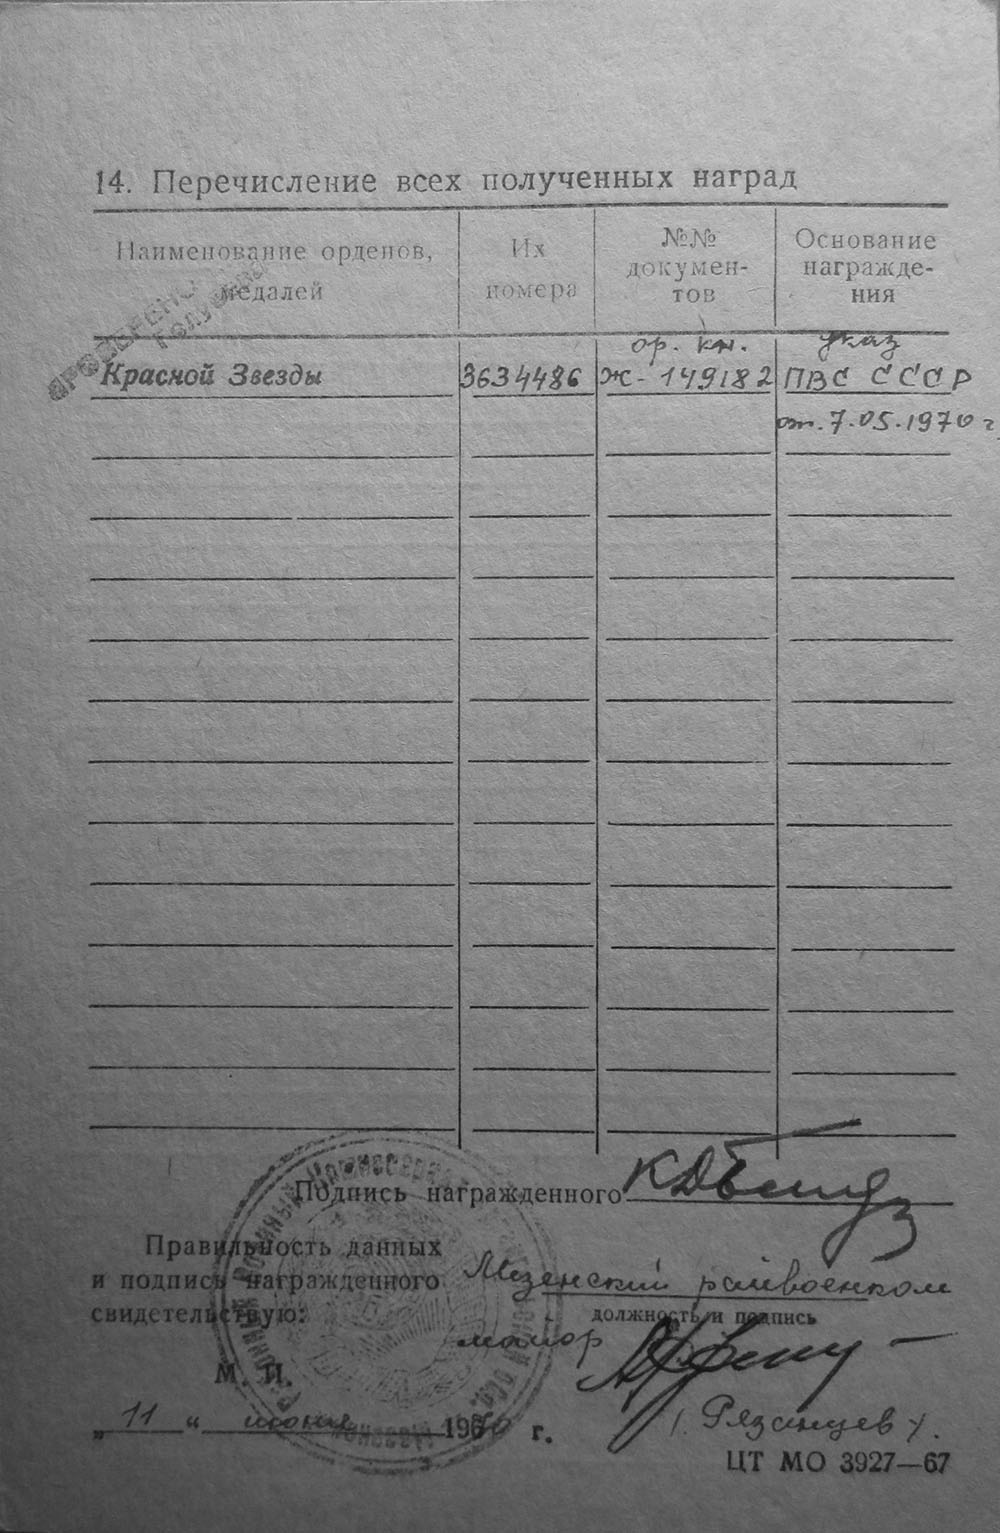 14. Перечисление всех полученных наград
Наименование орденов, медалей
Их номера
№№ докумен-
тов
Основание
награжде-
ния
ПРОВЕРЕНО
Красной Звезды
3634486
ор. кн.
Ж-149182
указ
ПВС СССР
от. 7.05.1970 г.
Подпись награжденного
Правильность данных
и подпись награжденного
свидетельствую:
Мезенский райвоенком
должность и подпись
майор
М. П.
„ 11 “ июня 1970 г.
(Рязанцев).
ЦТ МО 3927—67